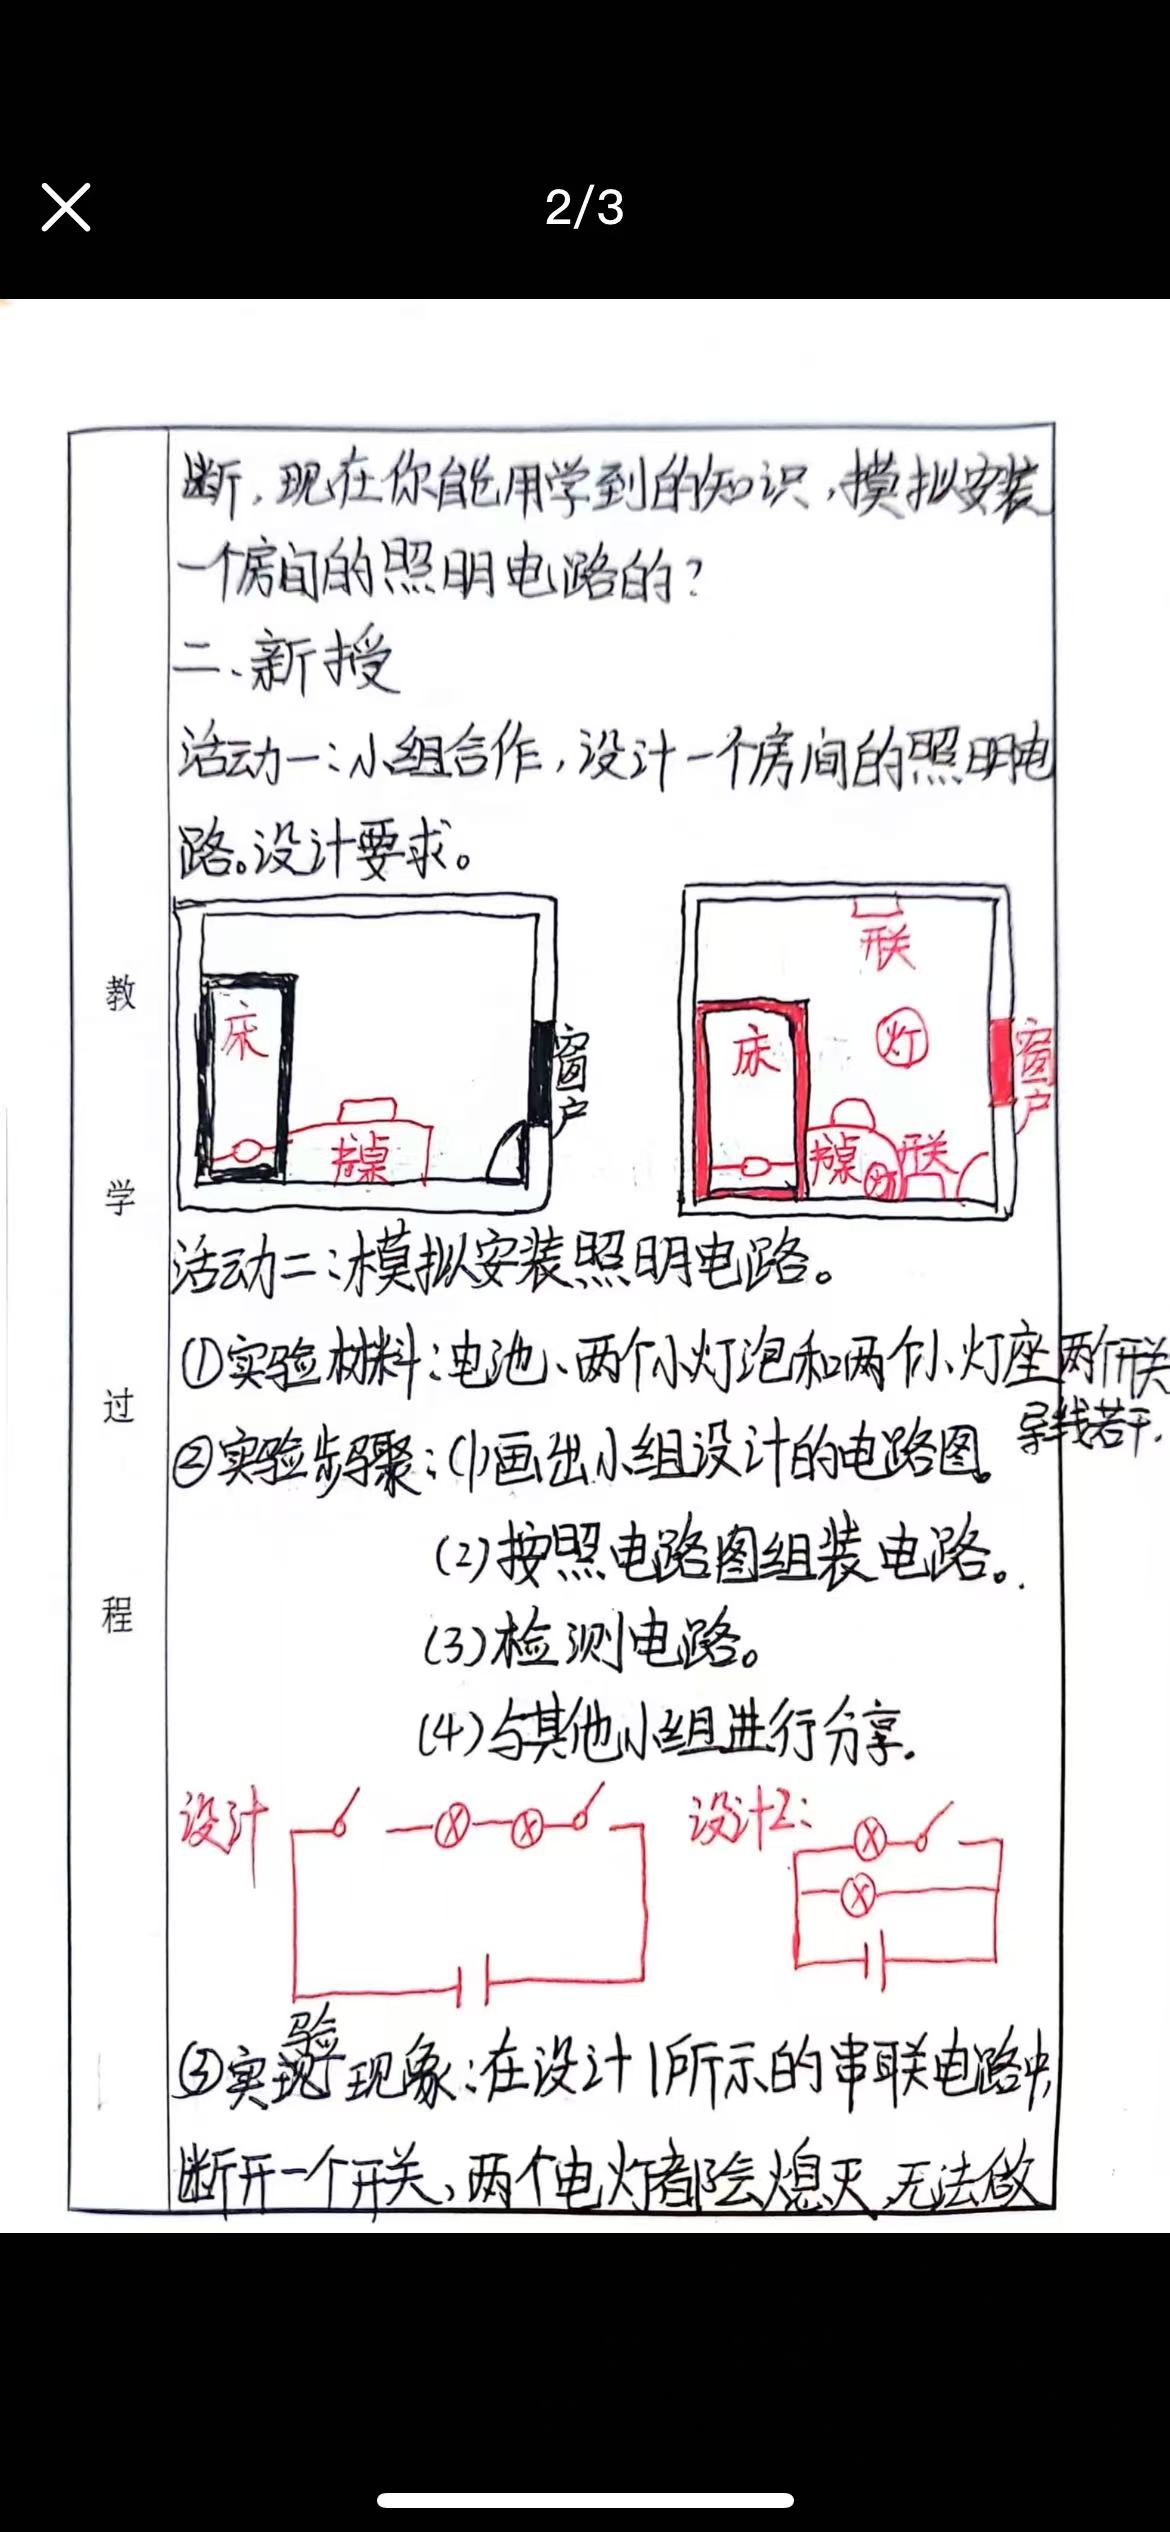 2/3
断,现在你能用学到的知识,模拟安装
一个房间的照明电路的?
二、新授
活动一:小组合作,设计一个房间的照明电
路。设计要求。
床
书桌
窗户
开关
床
灯
窗户
书桌
开关
活动二:模拟安装照明电路。
①实验材料:电池、两个小灯泡和两个小灯座两个开关
导线若干.
②实验步骤:(1)画出小组设计的电路图。
(2)按照电路图组装电路。
(3)检测电路。
(4)与其他小组进行分享.
设计
设计2:
验
③实现现象:在设计1所示的串联电路中,
断开一个开关,两个电灯都会熄灭,无法做
教
学
过
程